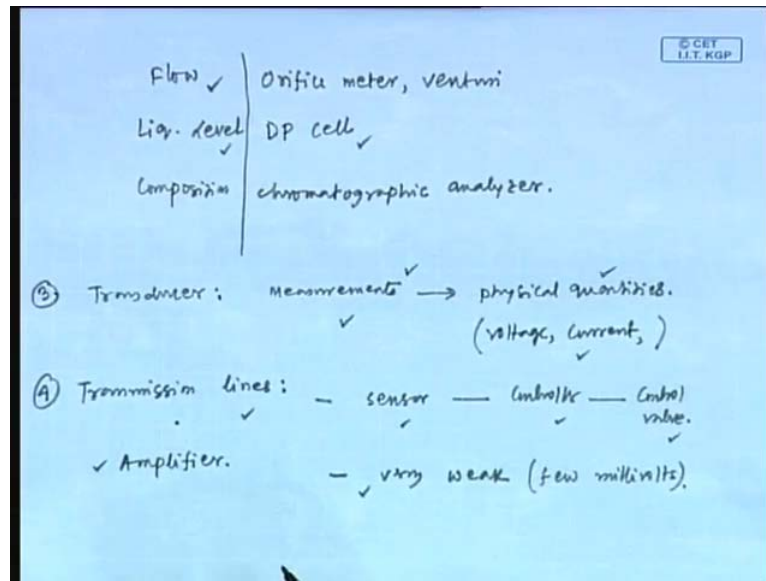 © CET
I.I.T. KGP
Flow ✓ | Orifice meter, venturi
Liq. Level ✓ | DP cell ✓
Composition | chromatographic analyzer.
③ Transducer : measurements ✓ → physical quantities. ✓
(voltage, current, )
④ Transmission lines : ✓ - sensor — Controller — Control valve.
✓ Amplifier. - ✓ very weak (few millivolts).